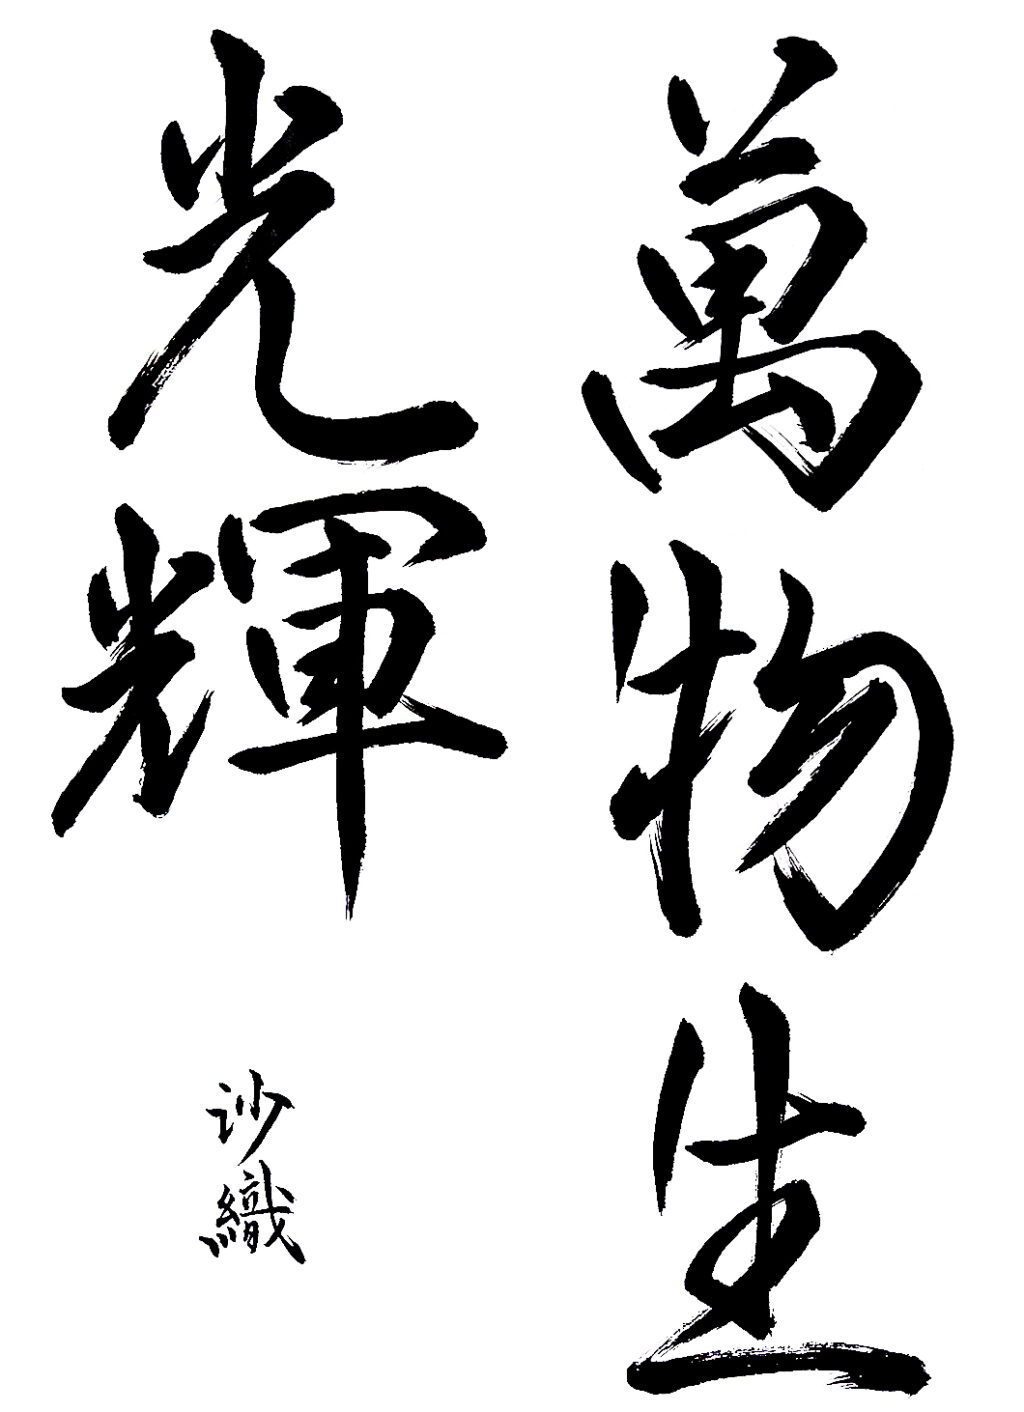 萬物生
光輝
沙織